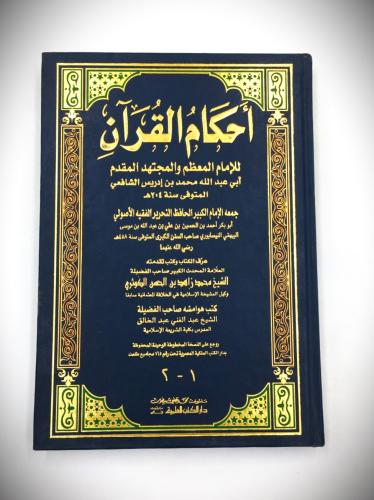 أحكام القرآن
للإمام المعظم والمجتهد المقدم
أبي عبد الله محمد بن إدريس الشافعي
المتوفى سنة ٢٠٤هـ
جمعه الإمام الكبير الحافظ النحرير الفقيه الأصولي
أبو بكر أحمد بن الحسين بن علي بن عبد الله بن موسى
البيهقي النيسابوري صاحب السنن الكبرى المتوفى سنة ٤٥٨هـ
رضي الله عنهما
عرف الكتاب وكتب تقدمته
العلامة المحدث الكبير صاحب الفضيلة
الشيخ محمد زاهد بن الحسن الكوثري
وكيل المشيخة الإسلامية في الخلافة العثمانية سابقا
كتب هوامشه صاحب الفضيلة
الشيخ عبد الغني عبد الخالق
المدرس بكلية الشريعة الإسلامية
روجع على النسخة المخطوطة الوحيدة المحفوظة
بدار الكتب الملكية المصرية تحت رقم ٧١٨ مجاميع طلعت
١ - ٢
دار الكتب العلمية